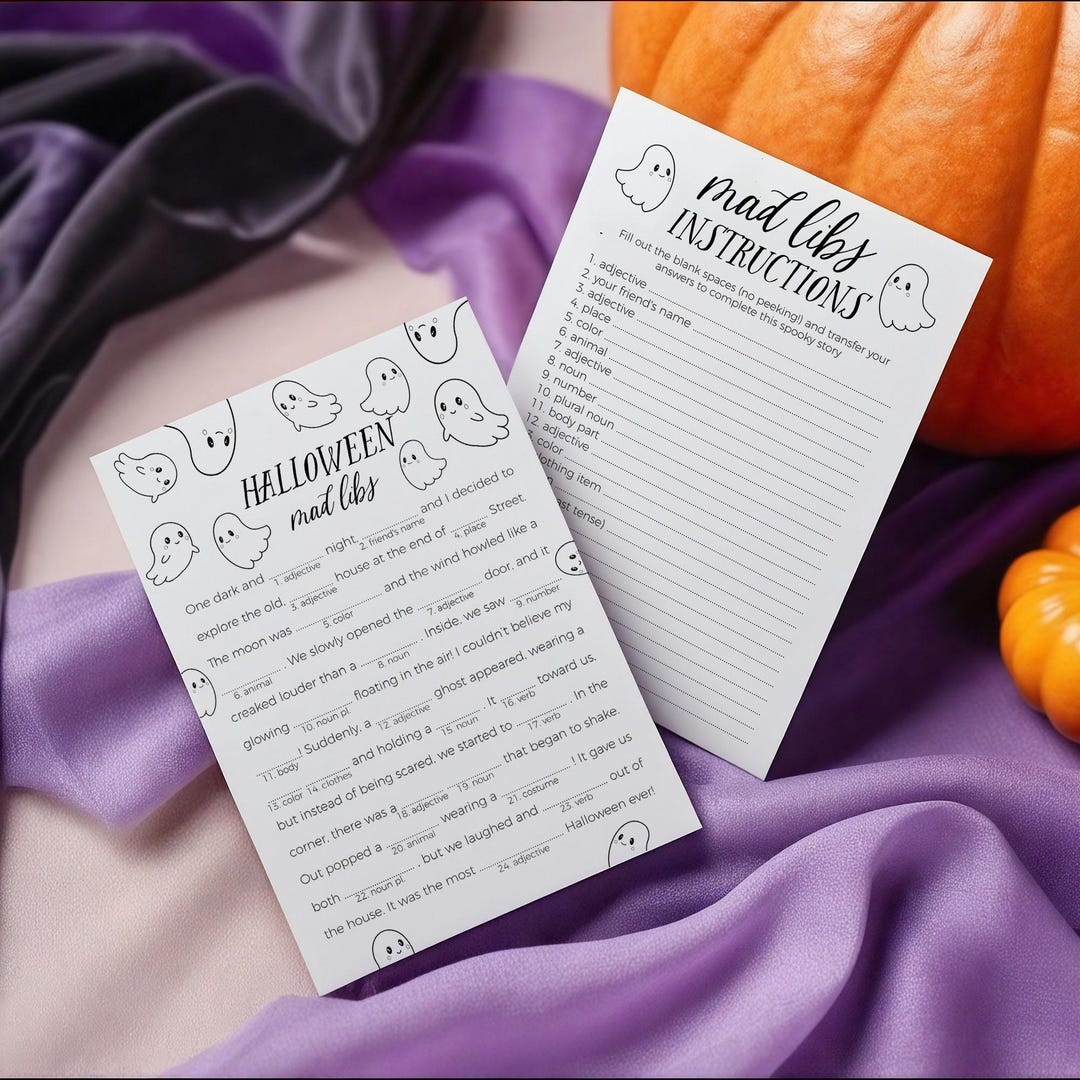 mad libs
INSTRUCTIONS
Fill out the blank spaces (no peeking!) and transfer your
answers to complete this spooky story
1. adjective
2. your friend's name
3. adjective
4. place
5. color
6. animal
7. adjective
8. noun
9. number
10. plural noun
11. body part
12. adjective
color
lothing item
ast tense)
HALLOWEEN
mad libs
One dark and night, and I decided to
1. adjective 2. friend's name
explore the old, house at the end of Street.
3. adjective 4. place
The moon was and the wind howled like a
5. color
. We slowly opened the door, and it
6. animal 7. adjective
creaked louder than a . Inside, we saw
8. noun 9. number
glowing floating in the air! I couldn't believe my
10. noun pl.
! Suddenly, a ghost appeared, wearing a
11. body 12. adjective
and holding a . It toward us,
13. color 14. clothes 15. noun 16. verb
but instead of being scared, we started to . In the
17. verb
corner, there was a that began to shake.
18. adjective 19. noun
Out popped a wearing a ! It gave us
20. animal 21. costume
both , but we laughed and out of
22. noun pl. 23. verb
the house. It was the most Halloween ever!
24. adjective